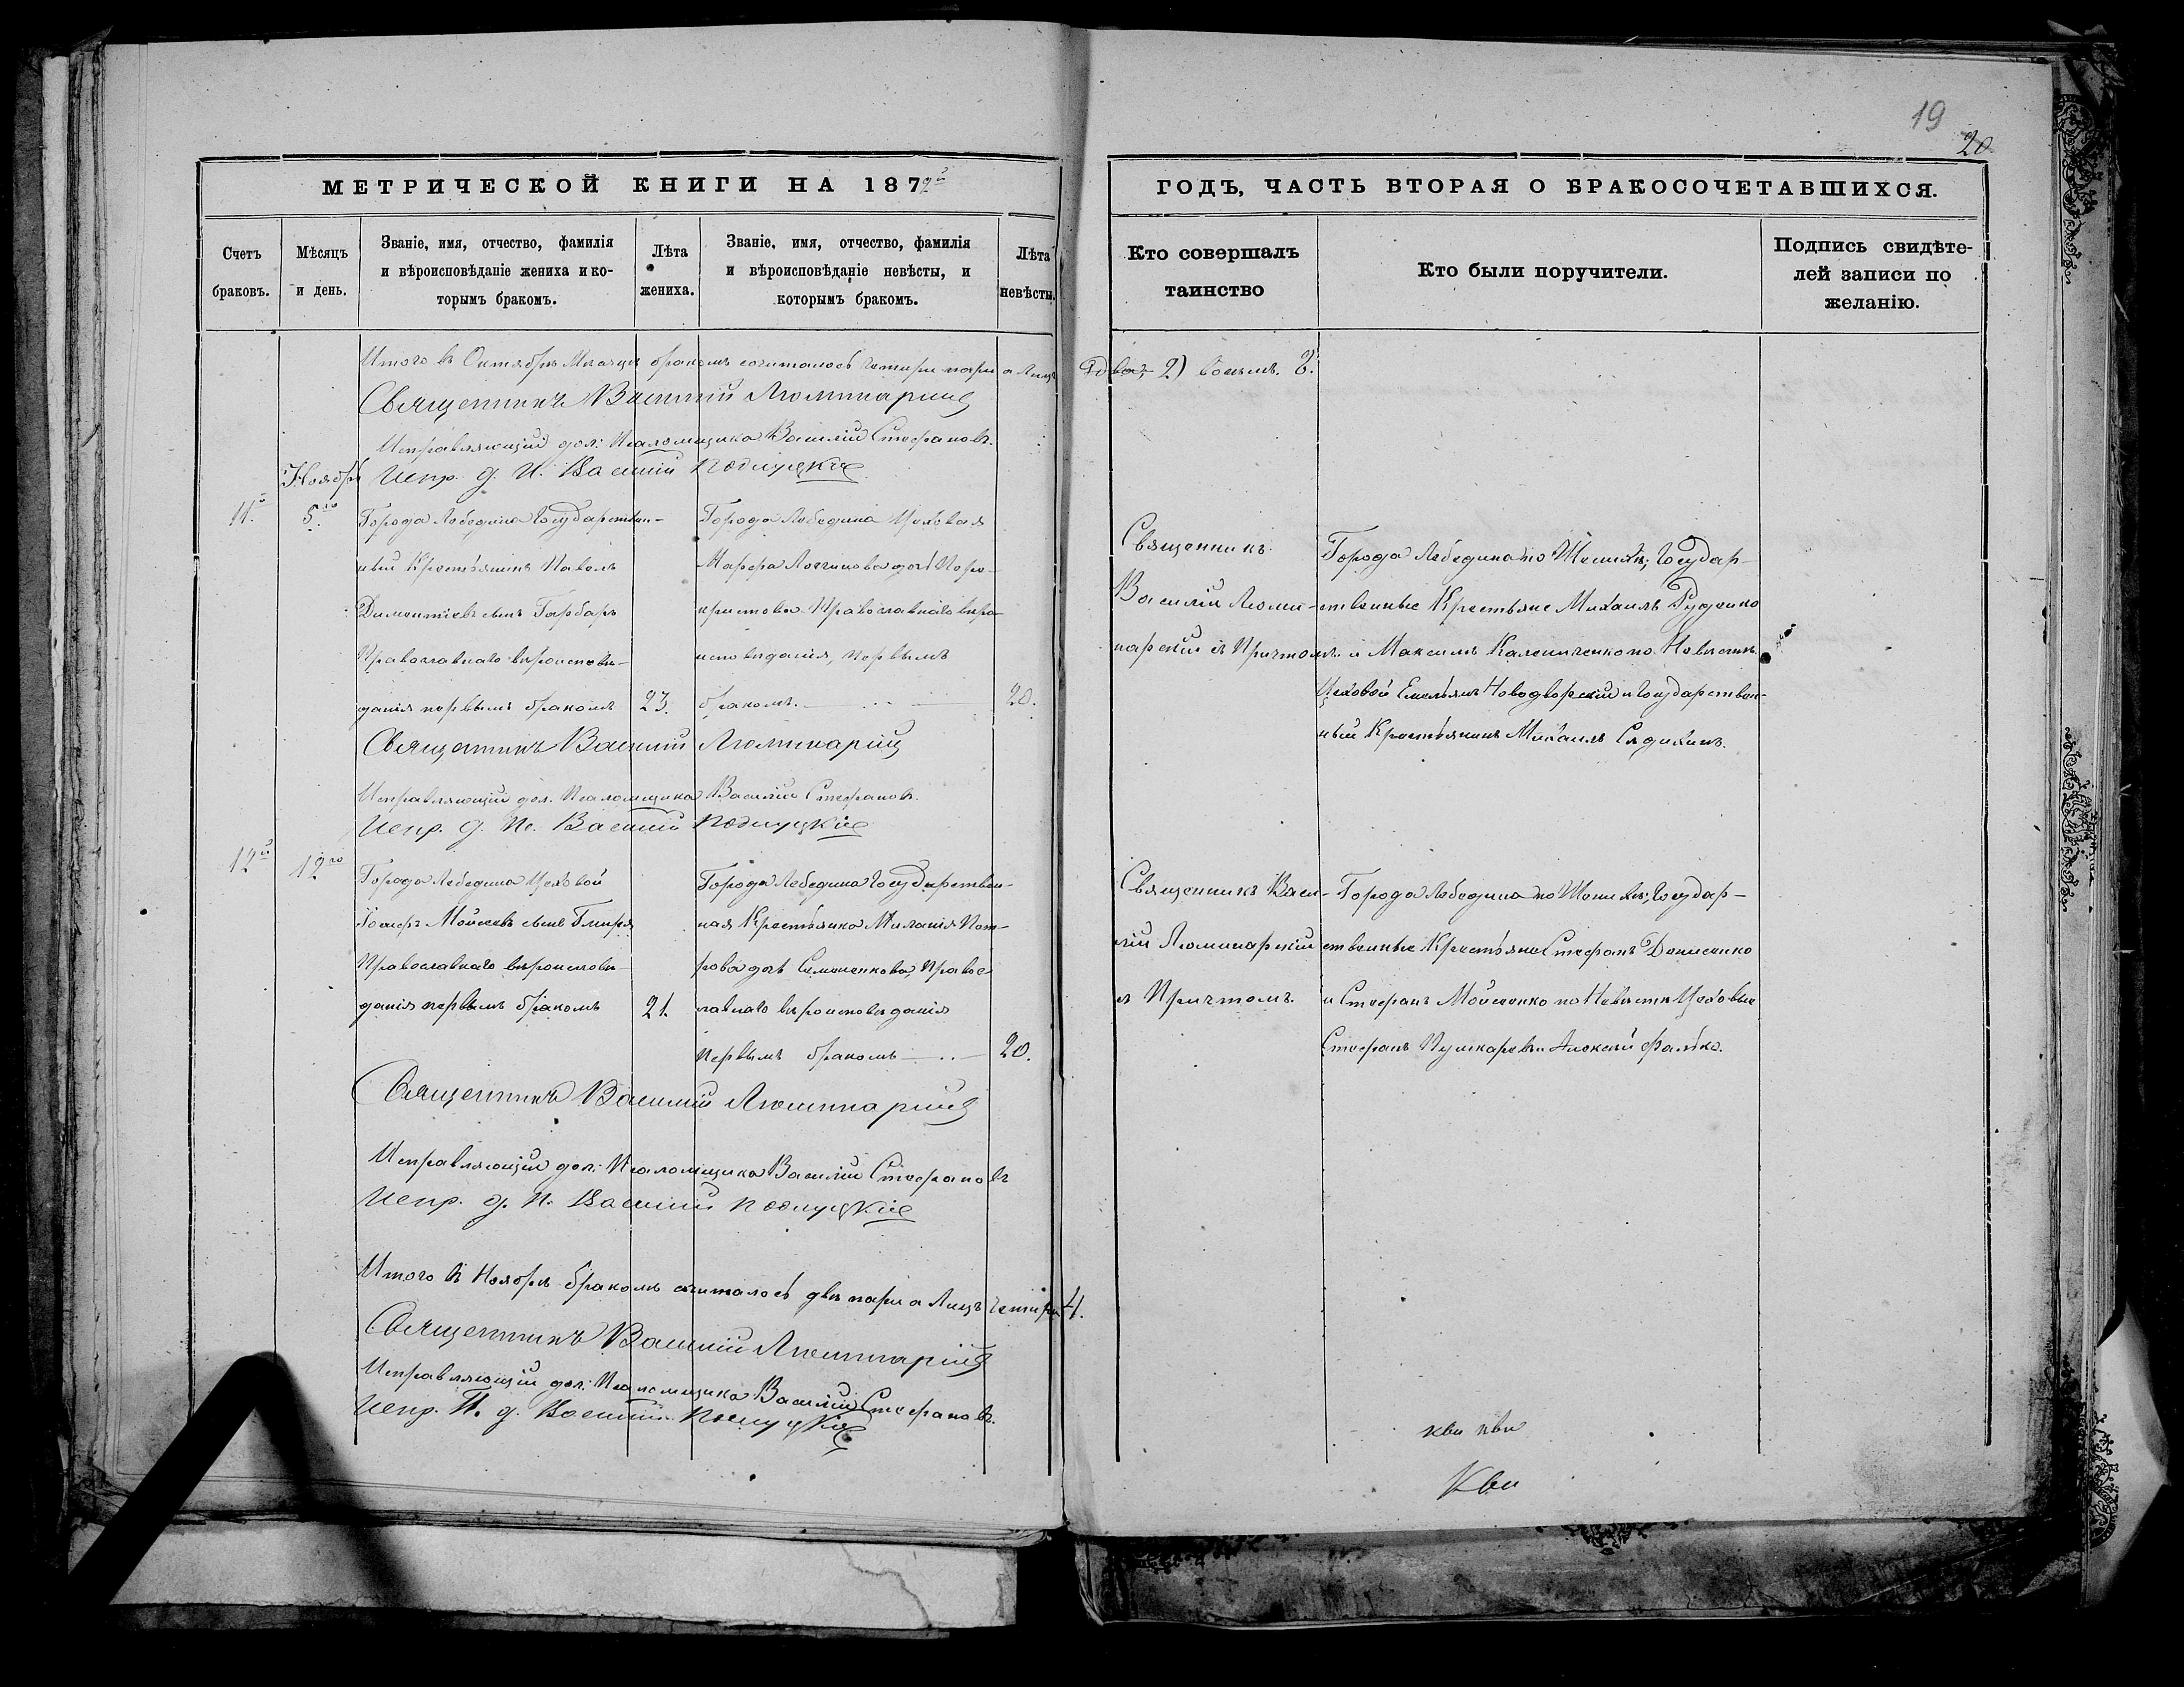 19
20
МЕТРИЧЕСКОЙ КНИГИ НА 1872й
ГОДЪ, ЧАСТЬ ВТОРАЯ О БРАКОСОЧЕТАВШИХСЯ.
Счетъ браковъ.
Мѣсяцъ и день.
Званіе, имя, отчество, фамилія
и вѣроисповѣданіе жениха и ко-
торымъ бракомъ.
Лѣта
жениха.
Званіе, имя, отчество, фамилія
и вѣроисповѣданіе невѣсты, и
которымъ бракомъ.
Лѣта
невѣсты.
Кто совершалъ
таинство
Кто были поручители.
Подпись свидѣте-
лей записи по
желанію.
Итого въ Октябрѣ Мѣсяцѣ бракомъ сочеталось четыри пары а лицъ
2) восемь. 8.
Священникъ Василій Люминарскій
Исправляющій дол: Псаломщика Василій Стефановъ.
Испр. д. П. Василій
Ноябрь
11й
5го
Города Лебедина Государствен-
ный Крестьянинъ Павелъ
Диментіевъ сынъ Гарбарь
Православнаго вѣроисповѣ-
данія первымъ бракомъ
23.
Города Лебедина Цеховая
Марфа Логгинова дочь
Православнаго вѣро-
исповѣданія, первымъ
бракомъ.
20.
Священникъ
Василій Люми-
нарскій съ Причтомъ.
Города Лебедина по Женихѣ; Государ-
ственные Крестьяне Михаилъ Руденко
и Максимъ Калениченко по Невѣстѣ
Цеховой Емельянъ Новодворскій и Государствен-
ный Крестьянинъ Михаилъ
Священникъ Василій Люминарскій
Исправляющій дол. Псаломщика Василій Стефановъ.
Испр. д. Пс. Василій
12й
12го
Города Лебедина Цеховой
Іосифъ Мойсеевъ сынъ Гмиря
Православнаго вѣроисповѣ-
данія первымъ бракомъ
21.
Города Лебедина Государствен-
ная Крестьянка Миланія Пет-
рова дочь Симоненкова, Правос-
лавнаго вѣроисповѣданія
Первымъ бракомъ
20.
Священникъ Васи-
лій Люминарскій
съ Причтомъ.
Города Лебедина по Женихѣ; Государ-
ственные Крестьяне Стефанъ Денисенко
и Стефанъ Мойсеенко по Невѣстѣ Цеховые
Стефанъ Пушкаревъ и Алексѣй Фалько.
Священникъ Василій Люминарскій
Исправляющій дол: Псаломщика Василій Стефановъ
Испр. д. П. Василій
Итого въ Ноябрѣ бракомъ сочеталось двѣ пары а лицъ четыри 4.
Священникъ Василій Люминарскій
Исправляющій дол: Псаломщика Василій Стефановъ.
Испр. П. д. Василій